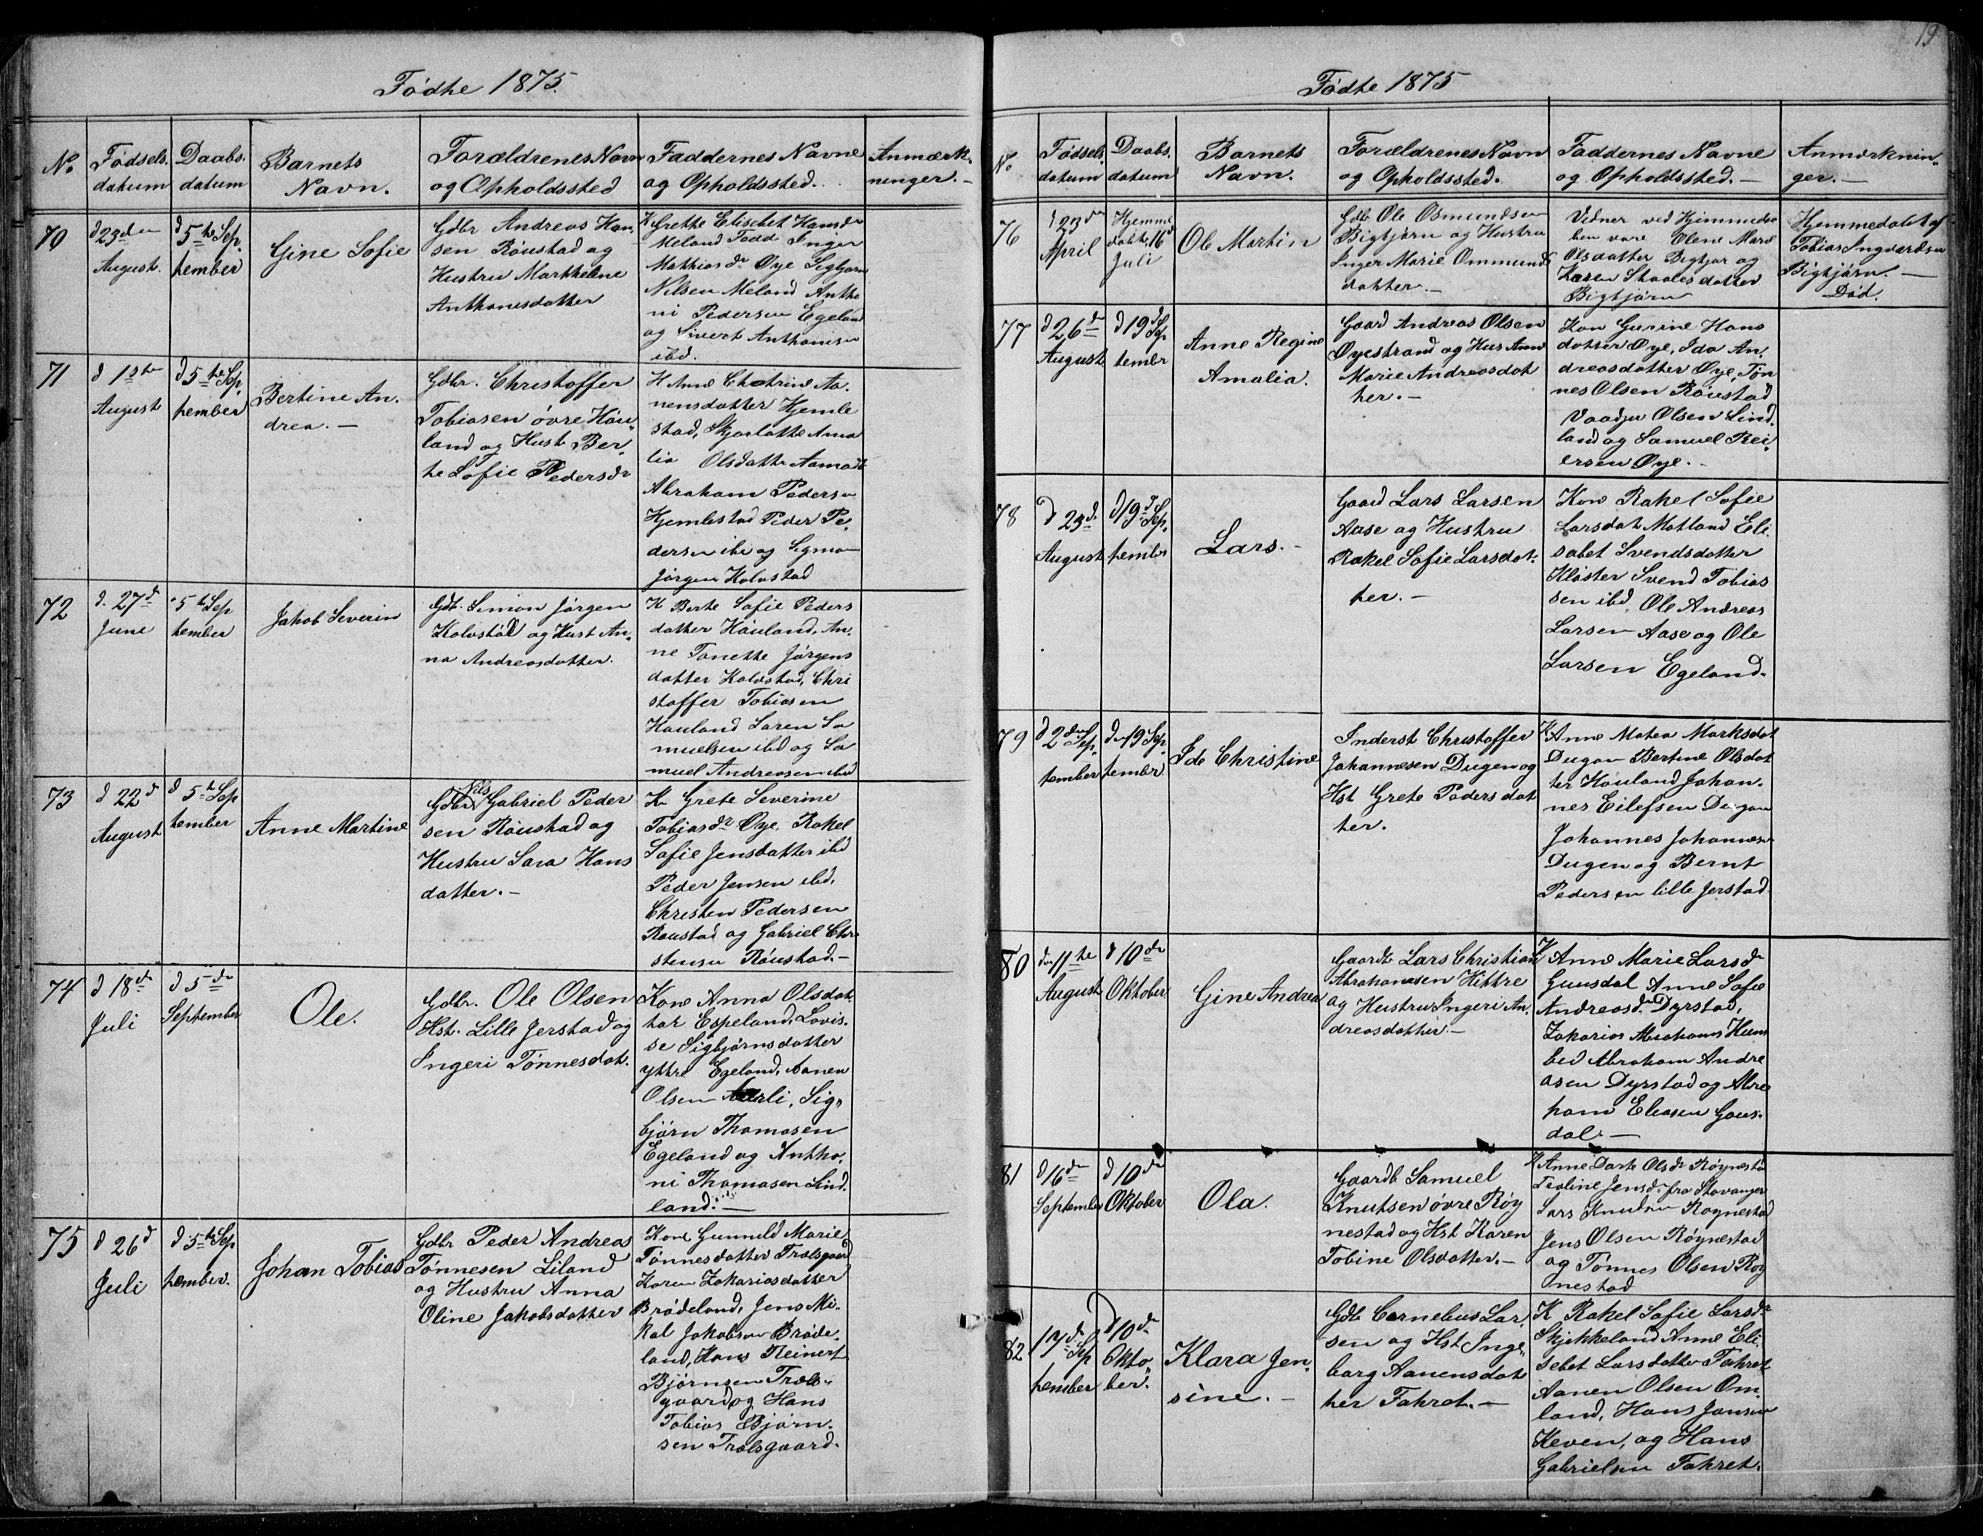 19
Fødte 1875.
No
Fødsels
datum
Daabs
datum
Barnets
Navn.
Forældrenes Navn
og Opholdssted
Faddernes Navne
og Opholdssted.
Anmærk-
ninger.
70
d 23de
August.
d 5te Sep,
tember
Gine Sofie
Gdbr Andreas Han
sen Röustad og
Hustru Marthelene
Anthonisdatter
K Grethe Elisebet Hansdr
Meland Född Inger
Mathiasdr Øye Sigbjørn
Nilsen Meland Antho
ni Pedersen Egeland
og Sivert Anthonisen
ibd.
71
d 1ste
August
d 5te Sep,
tember
Bertine An,
drea. –
Gdbr. Christoffer
Tobiasen övre Höu,
land og Hust Ber,
te Sofie Pedersdr
K Anne Chatrine Aa,
nensdatter Hjemle
stad, Skjarlotte Ama
lia Olsdatter
Abraham Pedersen
Hjemlestad Peder Pe,
dersen ibd og Sigmon
Jörgen Kolvstad
72
d. 27d
June
5te Sep
tember
Jakob Severin
Gdb. Simon Jørgen
Kolvstöl og Hust An,
na Andreasdatter.
K Berte Sofie Peders
datter Höuland, An,
ne Tonette Jørgens
datter Kolvstad, Chri
stoffer Tobiasen
Houland Søren Sa
muelsen ibd og Sa
muel Andreasen ibd
73
d 22d
August
d 5te Sep
tember
Anne Martine
Gdbr Nils Gabriel Peder
sen Röustad og
Hustru Sara Hans
datter. –
K Grete Severine
Tobiasdr Øye, Rakel
Sofie Jensdatter ibd
Peder Jensen ibd,
Christen Pedersen
Roustad og Gabriel Chr
stensen Röustad. –
74
d 18de
Juli
d 5de
September
Ole.
Gdbr. Ole Olsen
Hst. Lille Jerstad og
Ingeri Tønnesdat.
Kone Anna Olsdat,
ter Espeland, Lovis,
se Sigbjørnsdatter
yttre Egeland, Aanen
Olsen Aarli, Sig,
bjørn Thomasen
Egeland og Antho,
ni Thomasen Lind,
land. –
75
d 26d
Juli
d 5te Sep
tember.
Johan Tobias
Gdbr Peder Andreas
Tønnesen Liland
og Hustru Anna
Oline Jakobsdatter
Kone Gunuld Marie
Tønnesdatter Trælsgaard
Karen Zakariasdatter
Brådeland, Jens Mi,
kal Jakobsen Bråde,
land, Hans Reinert
Bjørnsen Træls,
gaard og Hans
Tobias Bjørn,
sen Trælsgaard.
Fødte 1875
No
Fødsels
datum
Daabs
datum
Barnets
Navn.
Forældrenes Navn
og Opholdssted.
Faddernes Navne
og Opholdssted. –
Anmærknin,
ger. –
76
d 23de
April
Hjemme
døbt 16d
Juli
Ole Martin
Gdb Ole Osmundsen
Bigtjørn og Hustru
Inger Marie Ommunds
datter. –
Vidner ved Hjemmedå
ben vare Elene Mari
Olsdatter Bigtjør og
Karen Staalesdatter
Bigtjørn
Hjemmedøbt af
Tobias Ingvardsen
Bigtjørn. –
Död.
77
d 26d
August
d 19d Sep
tembr
Anne Regine
Amalia.
Gaard Andreas Olsen
Øyestrand og Hus Anne
Marie Andreasdat
ter. –
Kon Gurine Hans
datter Øye, Ida An,
dreasdatter Øye, Tön
nes Olsen Röustad
Olsen Lind,
land og Samuel Rei,
ersen Øye. –
78
d 23de
August
d 19d Sep,
tember
Lars. –
Gaard Lars Larsen
Aase og Hustru
Rakel Sofie Larsdat.
ter. –
Kone Rakel Sofie
Larsdat Motland Eli
sabet Svendsdatter
Klöster Svend Tobias
sen ibd, Ole Andreas
Larsen Aase og Ole
Larsen Egeland.
79
d 2den Sep
tember
den 19 Sep,
tember
Ide Christine
Inderst Christoffer
Johannesen Dugen og
Hst Grete Pedersdat
ter.
K Anne Matea Marksdat
Dugan Bertine Olsdat
ter Höuland Johan,
nes Eilefsen Dugan
Johannes Johannesen
Dugen og Bernt
Pedersen lille Jerstad
80
den 11te
August
d 10de
Oktober
Gine Andrea
Gaardb Lars Christian
Abrahamsen Hittre
og Hustru Ingeri An,
dreasdatter. –
K Anne Marie Larsdr
Guusdal Anne Sofie
Andreasdr Dyrstad,
Zakarias Abrahams Hum
bed Abraham Andre
asen Dyrstad og Abra
ham Eliasen Gaus,
dal. –
81
d 16de
September
d 10de
Oktober
Ola.
Gaardb Samuel
Knutsen övre Røy
nestad og Hst Karen
Tobine Olsdatter. –
K Anne Dorte Olsdr Røynestad
Teoline Jensdr fra Stavanger
Lars Knudsen Røynestad
Jens Olsen Røynestad
og Tönnes Olsen Røy
nestad
82
17de Sep
tember
d 10de
Okto,
ber.
Klara Jen,
sine. –
Gdb Cornelius Lar,
sen og Hst Inge,
borg Aanensdat
ter Fahret. –
K Rakel Sofie Larsdr
Skjekkeland Anne Eli,
sebet Larsdatter Fahret
Aanen Olsen Om,
land, Hans Jansen
Keven, og Hans
Gabrielsen Fahret.